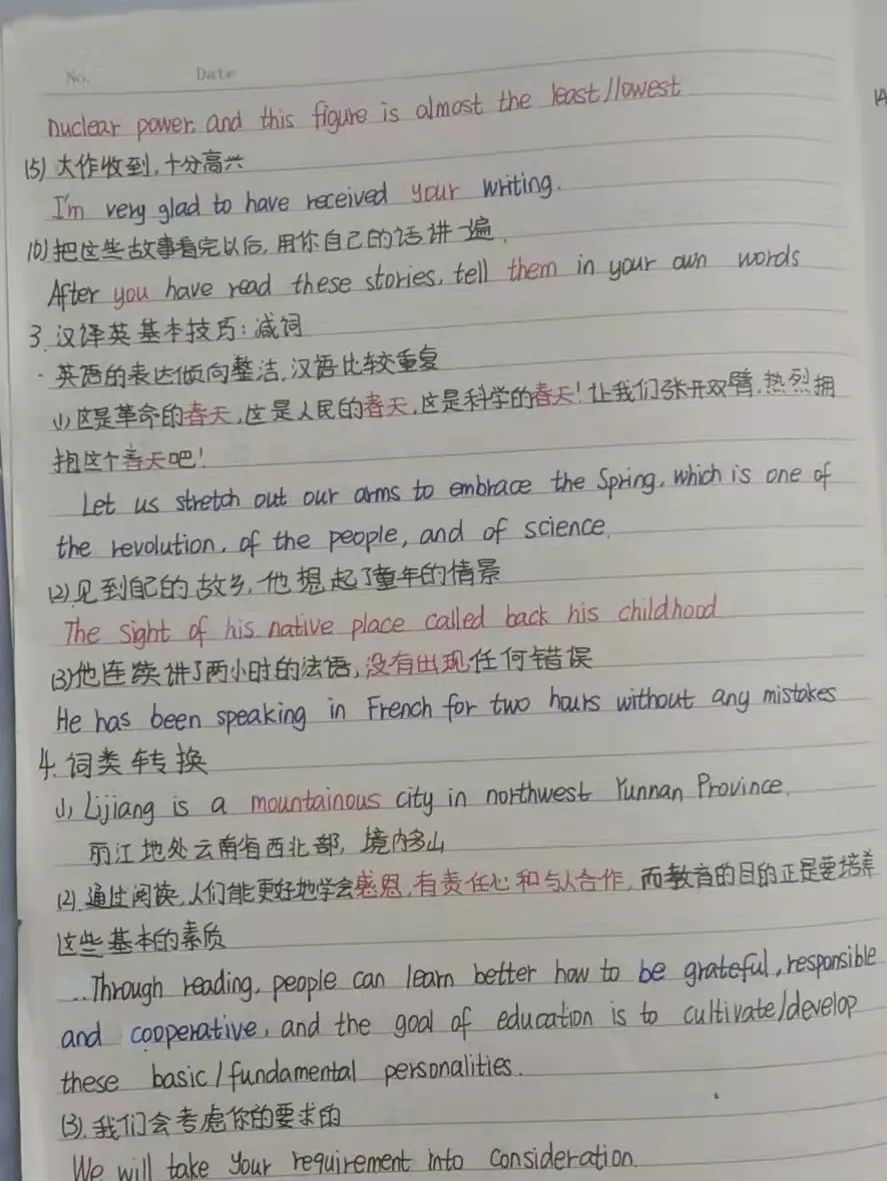 No. Date
nuclear power, and this figure is almost the least/lowest
(5) 大作收到,十分高兴
I'm very glad to have received your writing.
(6) 把这些故事看完以后,用你自己的话讲一遍.
After you have read these stories, tell them in your own words
3. 汉译英基本技巧:减词
· 英语的表达倾向整洁,汉语比较重复
(1) 这是革命的春天,这是人民的春天,这是科学的春天!让我们张开双臂,热烈拥
抱这个春天吧!
Let us stretch out our arms to embrace the Spring, which is one of
the revolution, of the people, and of science.
(2) 见到自己的故乡,他想起了童年的情景
The sight of his native place called back his childhood
(3) 他连续讲了两小时的法语,没有出现任何错误
He has been speaking in French for two hours without any mistakes
4. 词类转换
(1) Lijiang is a mountainous city in northwest Yunnan Province.
丽江地处云南省西北部,境内多山
(2) 通过阅读,人们能更好地学会感恩,有责任心和与人合作,而教育的目的正是要培养
这些基本的素质
..Through reading, people can learn better how to be grateful, responsible
and cooperative, and the goal of education is to cultivate/develop
these basic/fundamental personalities.
(3). 我们会考虑你的要求的
We will take your requirement into consideration.